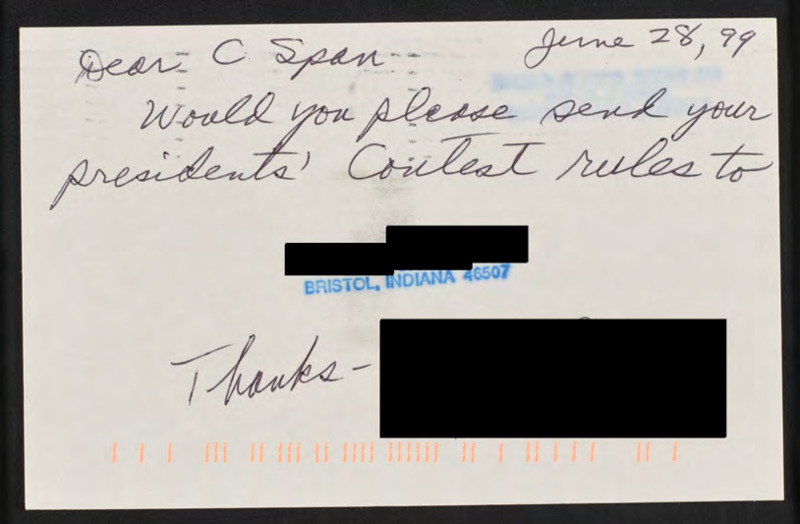 June 28, 99
Dear C Span
Would you please send your
presidents' Contest rules to
BRISTOL, INDIANA 46507
Thanks-